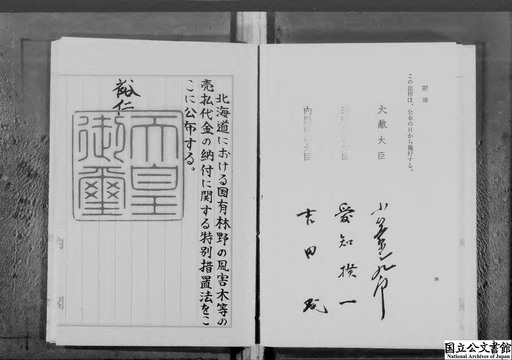 附則
この法律は、公布の日から施行する。
大蔵大臣
小笠原三九郎
愛知揆一
内閣総理大臣
吉田茂
四
北海道における国有林野の風害木等の
売払代金の納付に関する特別措置法をこ
こに公布する。
裕仁
天皇
御璽
国立公文書館
National Archives of Japan